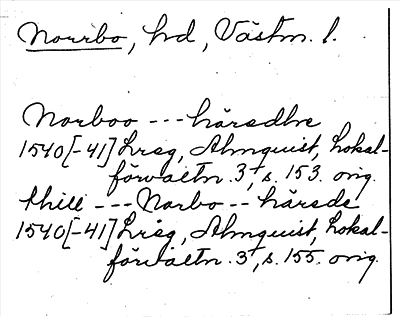 Norrbo, hd, Västm. l.
Norboo --- häredhe
1540[-41] Lräg, Almquist, Lokal-
förvaltn. 3+, s. 153. orig.
thill --- Norbo -- härede
1540[-41] Lräg, Almquist, Lokal-
förvaltn. 3+, s. 155. orig.